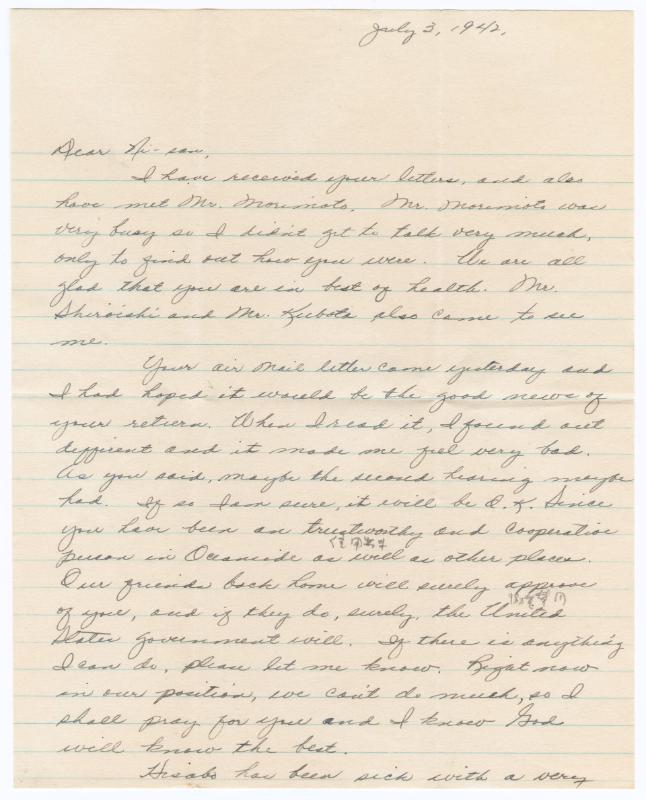 July 3, 1942.
Dear Ni-san,
I have received your letters, and also
have met Mr. Morimoto. Mr. Morimoto was
very busy so I didn't get to talk very much,
only to find out how you were. We are all
glad that you are in best of health. Mr.
Shiroishi and Mr. Kubota also came to see
me.
Your air mail letter came yesterday and
I had hoped it would be the good news of
your return. When I read it, I found out
different and it made me feel very bad.
As you said, maybe the second hearing maybe
had. If so I am sure, it will be O.K. Since
you have been an trustworthy and cooperative
person in Oceanside as well as other places.
Our friends back home will surely approve
of you, and if they do, surely, the United
States government will. If there is anything
I can do, please let me know. Right now
in our position, we can't do much, so I
shall pray for you and I know God
will know the best.
Hisabo has been sick with a very